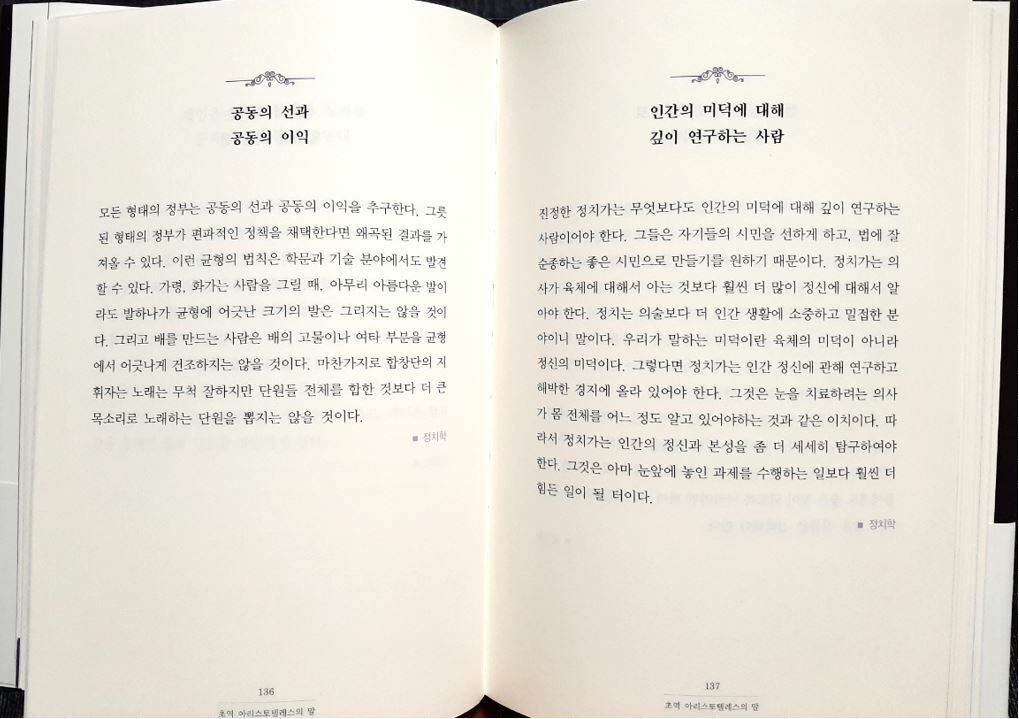 공동의 선과
공동의 이익
모든 형태의 정부는 공동의 선과 공동의 이익을 추구한다. 그릇
된 형태의 정부가 편파적인 정책을 채택한다면 왜곡된 결과를 가
져올 수 있다. 이런 균형의 법칙은 학문과 기술 분야에서도 발견
할 수 있다. 가령, 화가는 사람을 그릴 때, 아무리 아름다운 발이
라도 발하나가 균형에 어긋난 크기의 발은 그리지는 않을 것이
다. 그리고 배를 만드는 사람은 배의 고물이나 여타 부분을 균형
에서 어긋나게 건조하지는 않을 것이다. 마찬가지로 합창단의 지
휘자는 노래는 무척 잘하지만 단원들 전체를 합한 것보다 더 큰
목소리로 노래하는 단원을 뽑지는 않을 것이다.
■ 정치학
136
초역 아리스토텔레스의 말
인간의 미덕에 대해
깊이 연구하는 사람
진정한 정치가는 무엇보다도 인간의 미덕에 대해 깊이 연구하는
사람이어야 한다. 그들은 자기들의 시민을 선하게 하고, 법에 잘
순종하는 좋은 시민으로 만들기를 원하기 때문이다. 정치가는 의
사가 육체에 대해서 아는 것보다 훨씬 더 많이 정신에 대해서 알
아야 한다. 정치는 의술보다 더 인간 생활에 소중하고 밀접한 분
야이니 말이다. 우리가 말하는 미덕이란 육체의 미덕이 아니라
정신의 미덕이다. 그렇다면 정치가는 인간 정신에 관해 연구하고
해박한 경지에 올라 있어야 한다. 그것은 눈을 치료하려는 의사
가 몸 전체를 어느 정도 알고 있어야하는 것과 같은 이치이다. 따
라서 정치가는 인간의 정신과 본성을 좀 더 세세히 탐구하여야
한다. 그것은 아마 눈앞에 놓인 과제를 수행하는 일보다 훨씬 더
힘든 일이 될 터이다.
■ 정치학
137
초역 아리스토텔레스의 말